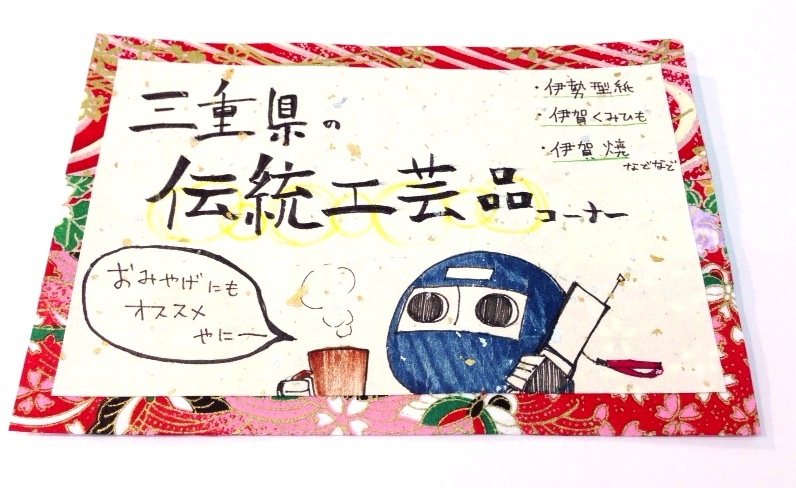 三重県の
伝統工芸品コーナー
・伊勢型紙
・伊賀くみひも
・伊賀焼
などなど
おみやげにも
オススメ
やにー